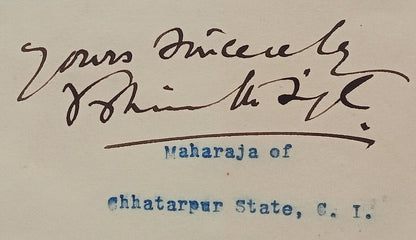 Yours Sincerely
Maharaja of
Chhatarpur State, C. I.